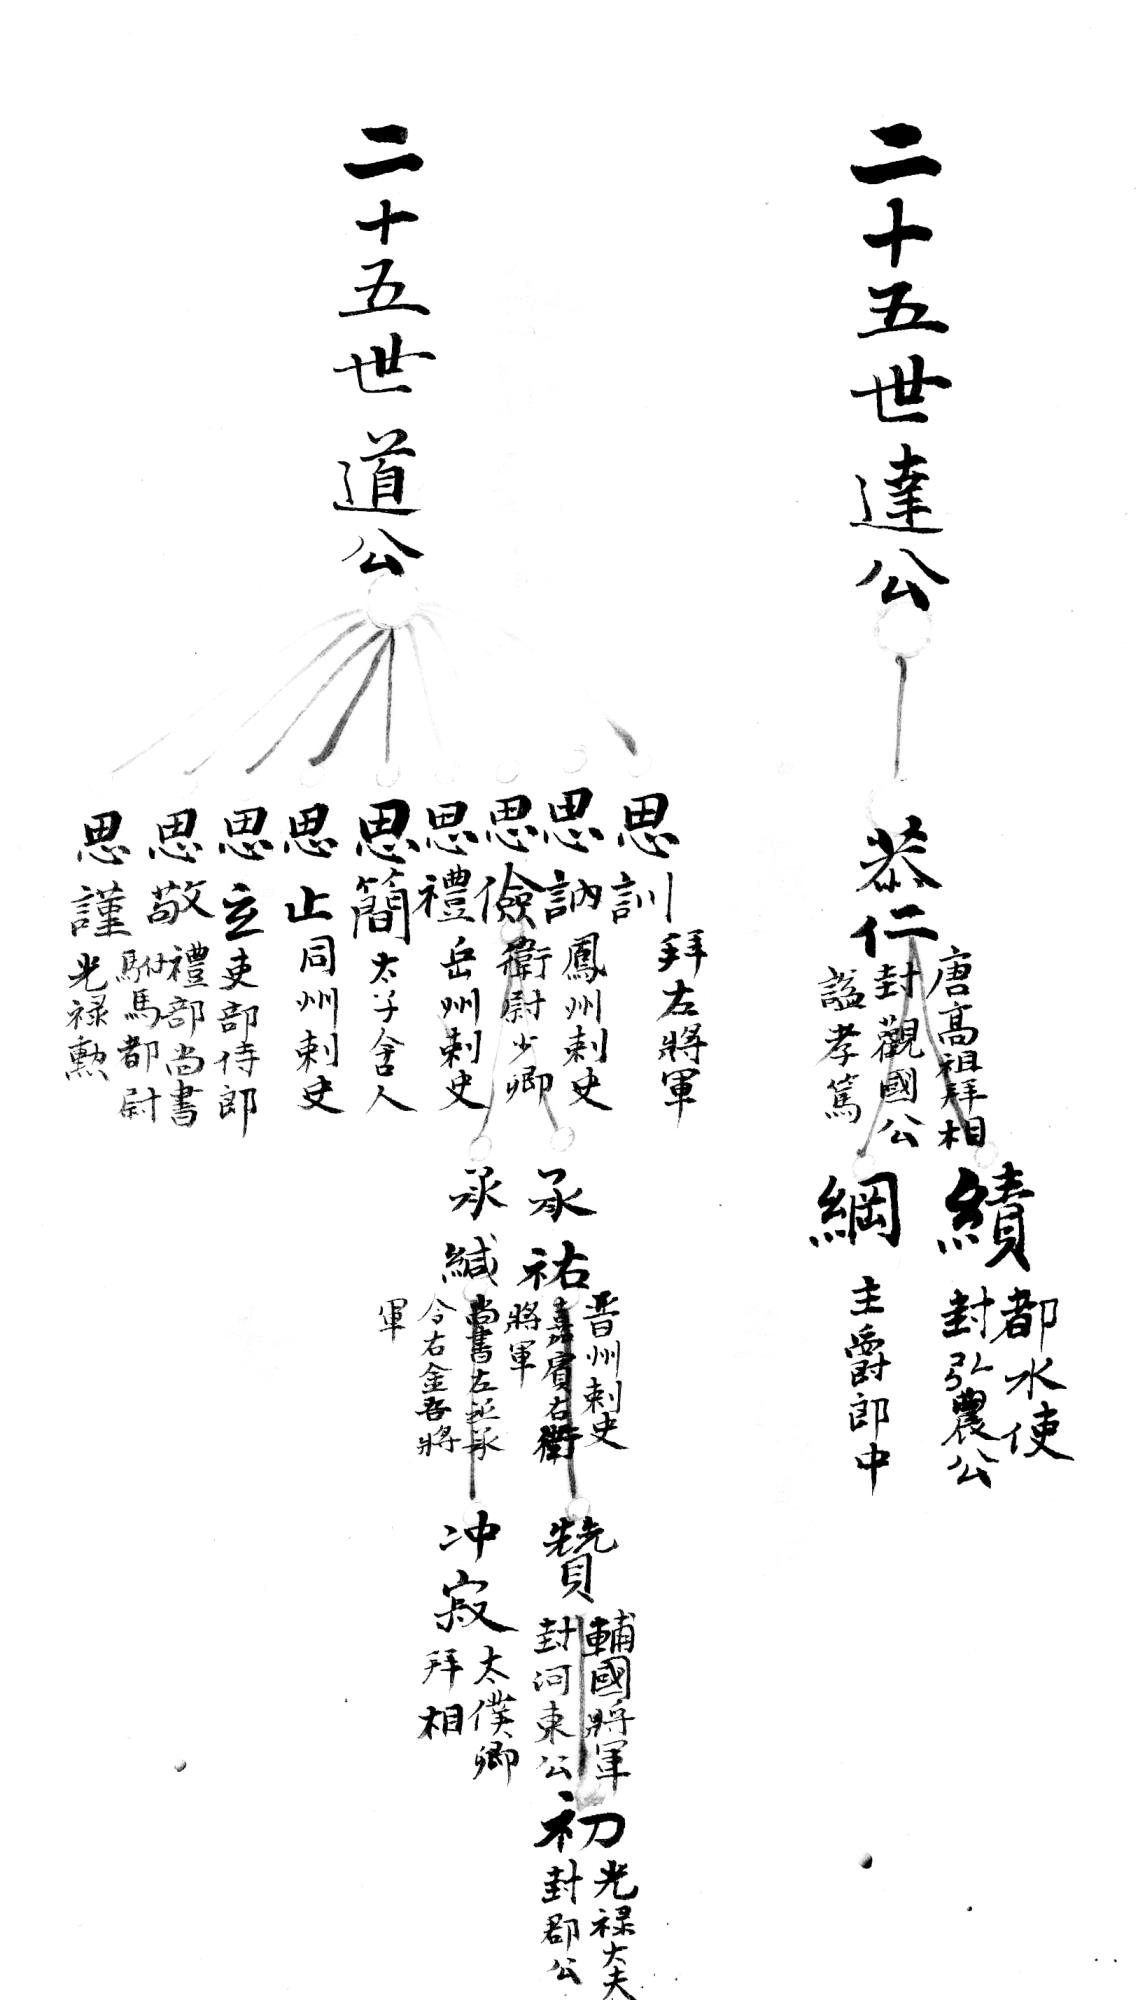 二十五世達公
恭仁
唐高祖拜相
封觀國公
謚孝篤
績
都水使
封弘農公
綱
主爵郎中
二十五世道公
思訓
拜左將軍
思訥
鳳州刺史
思儉
衛尉少卿
思禮
岳州刺史
思簡
太子舍人
思止
同州刺史
思立
吏部侍郎
思敬
禮部尚書
駙馬都尉
思謹
光禄勲
承祐
晋州刺史
嘉賓右衛
將軍
承緘
尚書左丞承
令右金吾將
軍
贊
輔國將軍
封河東公
冲寂
太僕卿
拜相
初
光禄大夫
封郡公